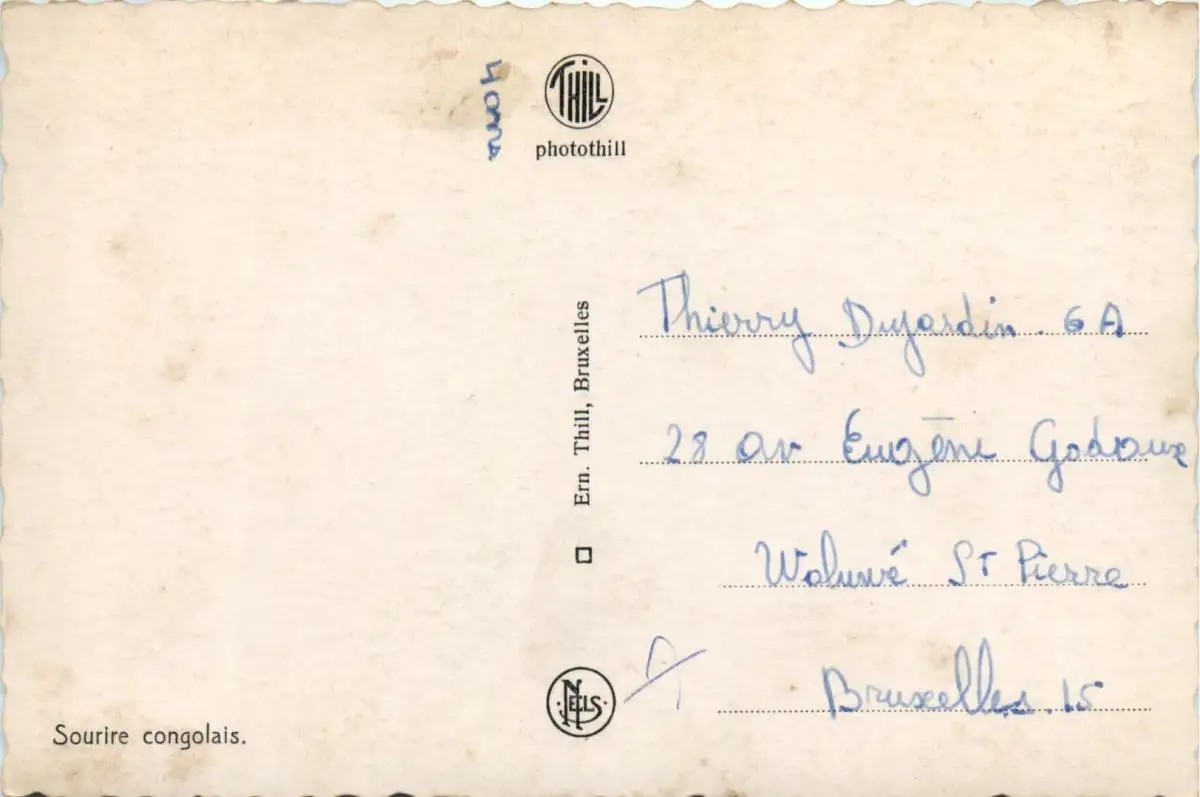 4 ans
THILL
photothill
Ern. Thill, Bruxelles
Thierry Dujardin. 6A
28 av Eugène Godaux
Woluwé St Pierre
Bruxelles. 15
NELS
Sourire congolais.